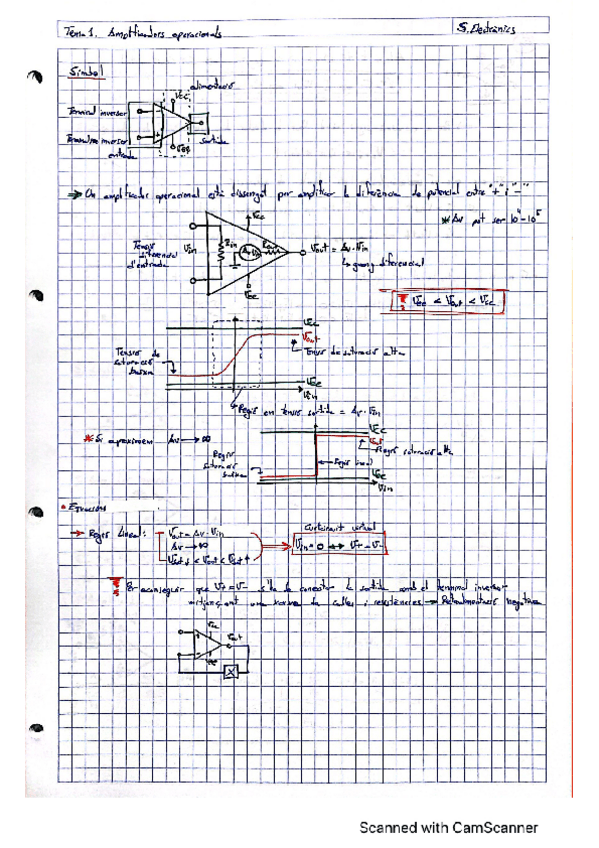 Tema 1. Amplificadors operacionals
S. Electrònics
Símbol
alimentació
Vcc
Terminal inversor
Terminal no inversor
entrada
VEE
sortida
⇒ Un amplificador operacional està dissenyat per amplificar la diferència de potencial entre "+" i "-"
* Av pot ser 10⁴-10⁵
Vcc
Tensió diferencial d'entrada
Vin
Rin
Vout = Av·Vin
↳ guany diferencial
VEE
VEE < Vout < Vcc
Vcc
Vout
Tensió de saturació alta
Tensió de saturació baixa
VEE
Vin
Regió en tensió sortida = Av·Vin
* Si aproximem Av → ∞
Vcc
Vout
Regió saturació alta
Regió saturació baixa
Regió lineal
VEE
Vin
→ Regió Lineal:
Vout = Av·Vin
Av → ∞
Curtcircuit virtual
Vin = 0 ↔ V+ = V-
Per aconseguir que V+ = V- s'ha de connectar la sortida amb el terminal inversor
mitjançant una xarxa de cables i resistències → Retroalimentació negativa
Vcc
Vout
VEE
X
Scanned with CamScanner